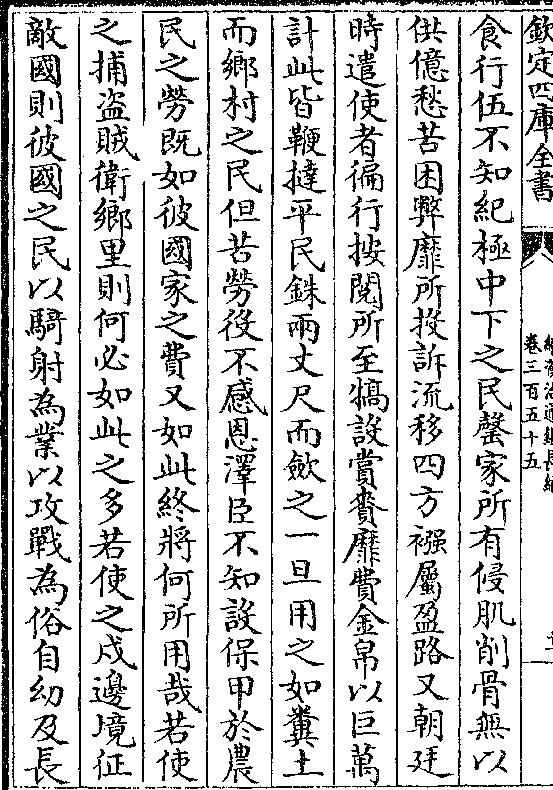 欽定四庫全書
續資治通鑑長編
卷三百五十五
食行伍不知紀極中下之民罄家所有侵肌削骨無以
供億愁苦困弊靡所投訴流移四方襁屬盈路又朝廷
時遣使者徧行按閱所至犒設賞賚靡費金帛以巨萬
計此皆鞭撻平民銖兩丈尺而斂之一旦用之如糞土
而鄉村之民但苦勞役不感恩澤臣不知設保甲於農
民之勞既如彼國家之費又如此終將何所用哉若使
之捕盜賊衛鄉里則何必如此之多若使之戍邊境征
敵國則彼國之民以騎射為業以攻戰為俗自幼及長